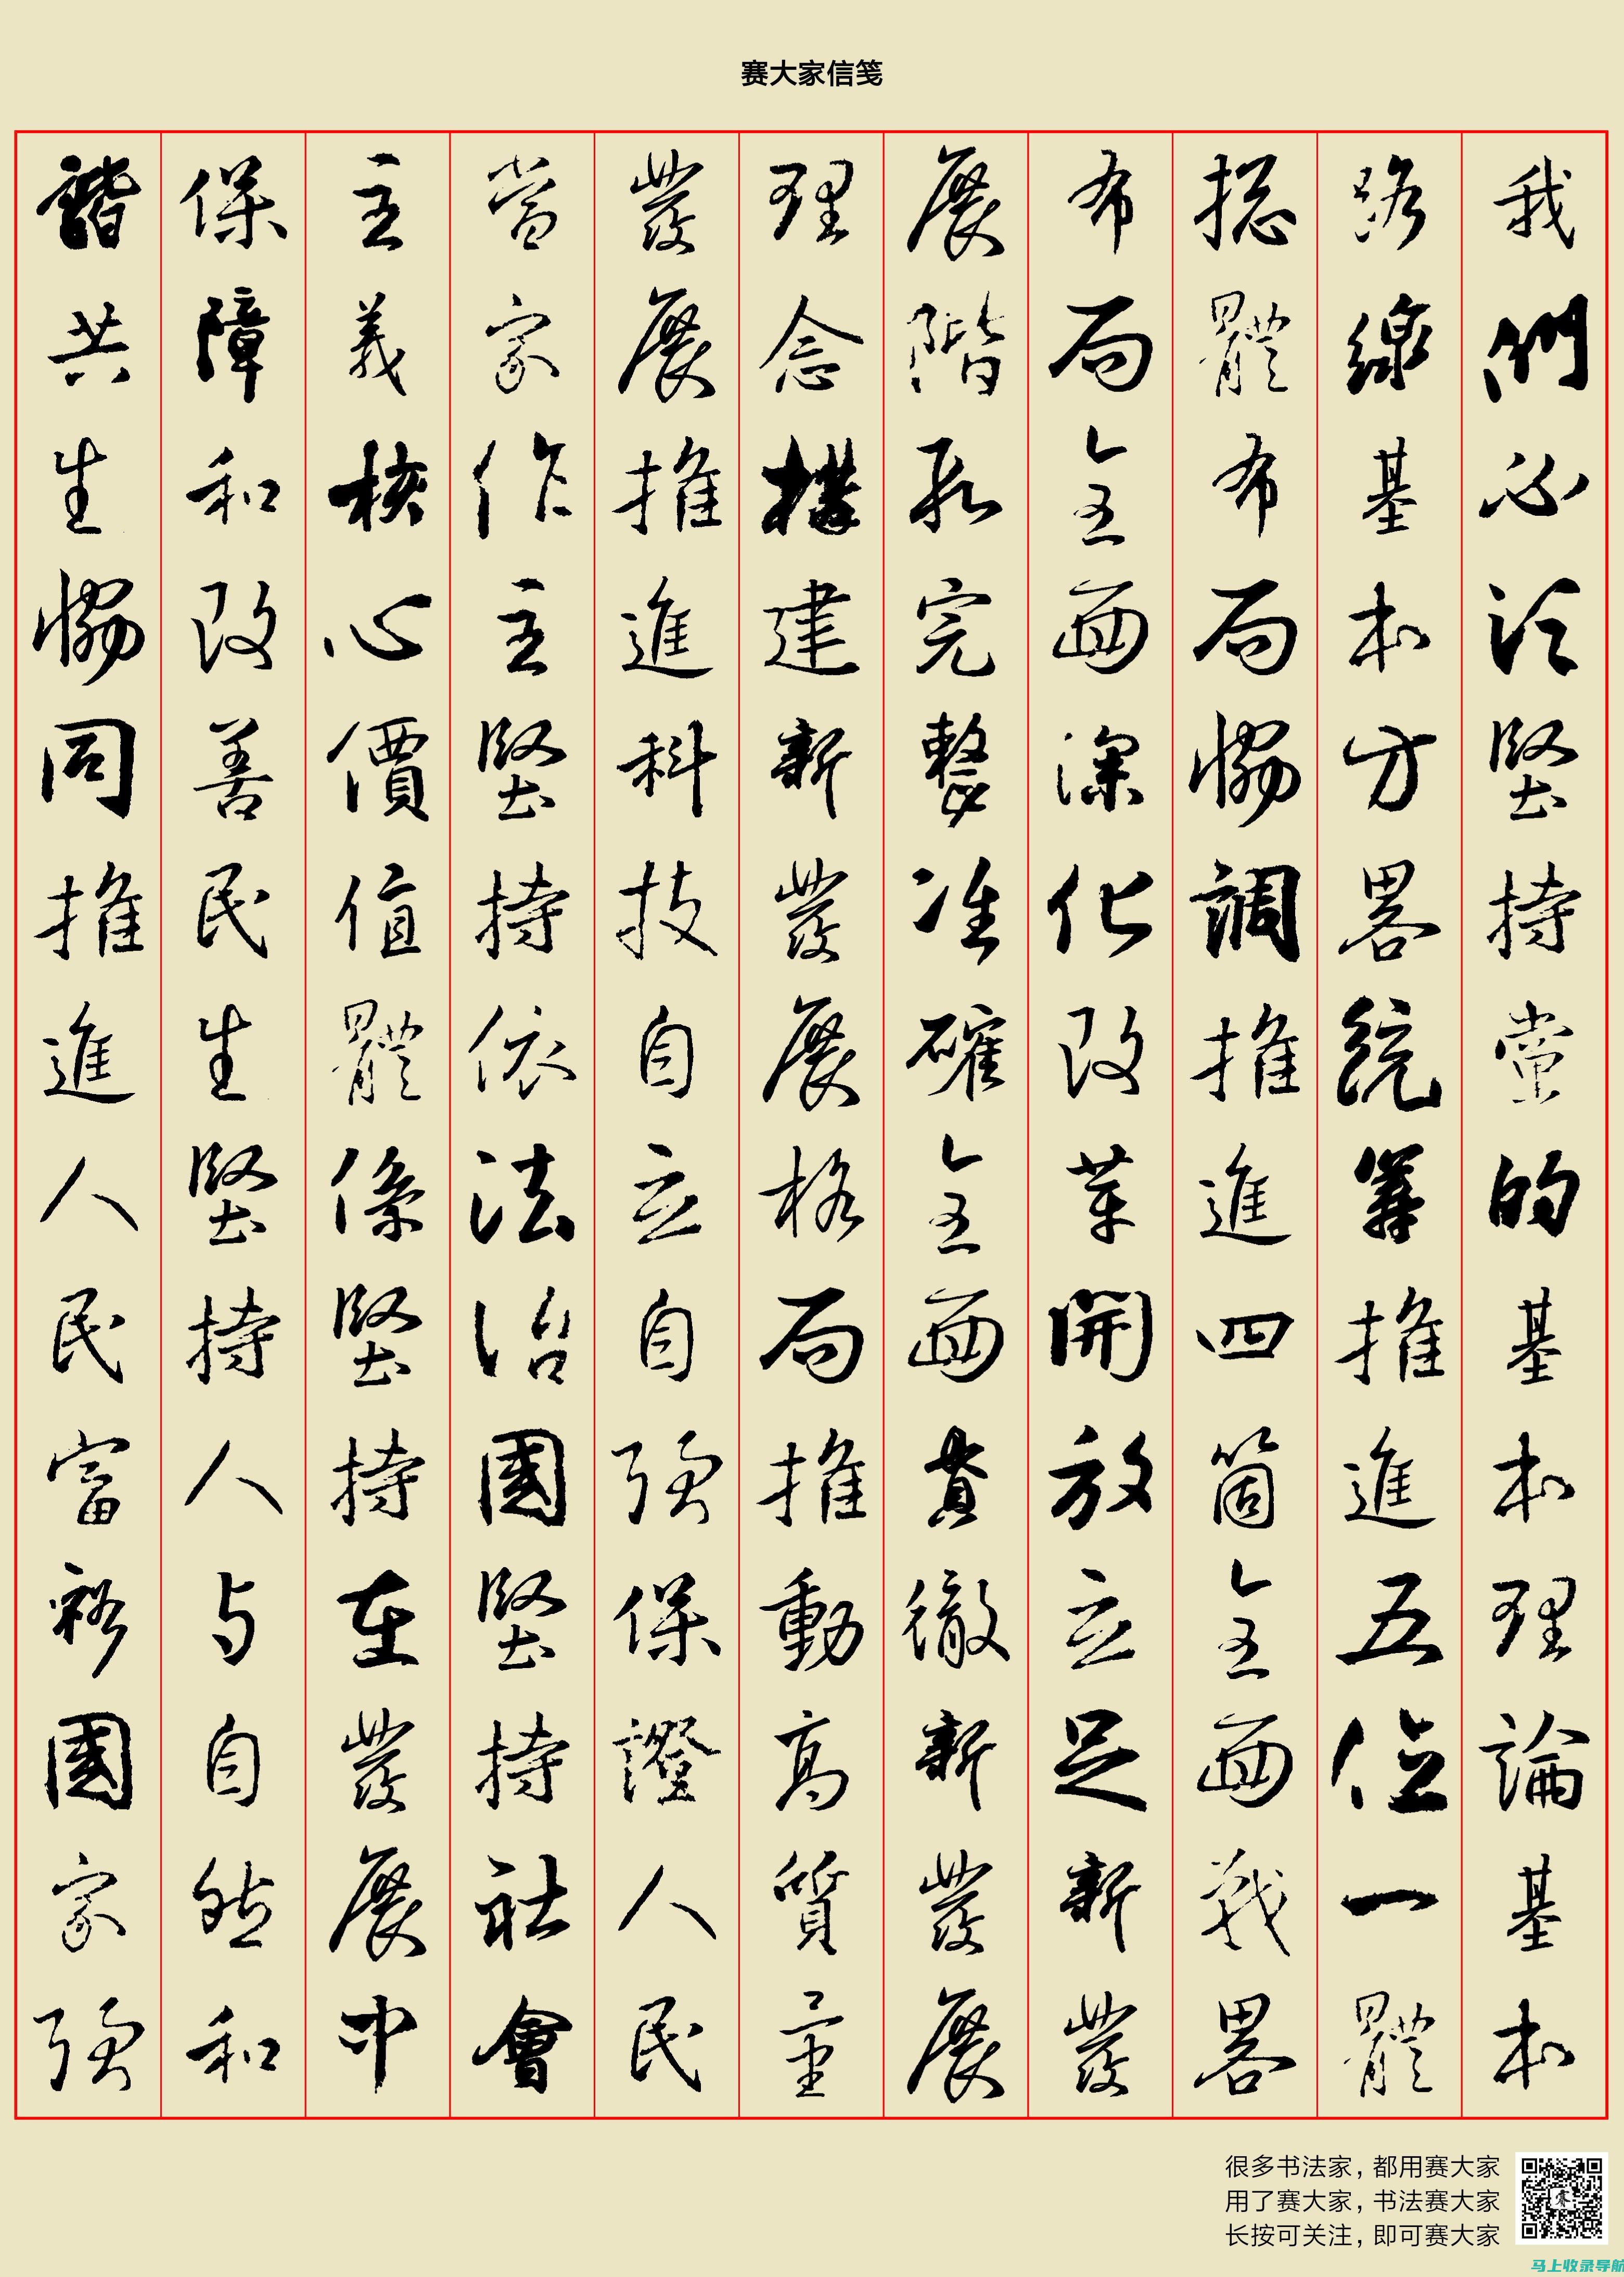 赛大家信笺
我們必須堅持黨的基本理論基本
路線基本方畧統籌推進五位一體
揔體布局協調推進四箇全面戰畧
布局全面深化改革開放立足新發
展階段完整准確全面貫徹新發展
理念構建新發展格局推動高質量
發展推進科技自立自強保證人民
當家作主堅持依法治國堅持社會
主義核心價值體係堅持在發展中
保障和改善民生堅持人与自然和
諧共生協同推進人民富裕國家強
很多书法家，都用赛大家
用了赛大家，书法赛大家
长按可关注，即可赛大家
马上收录导航